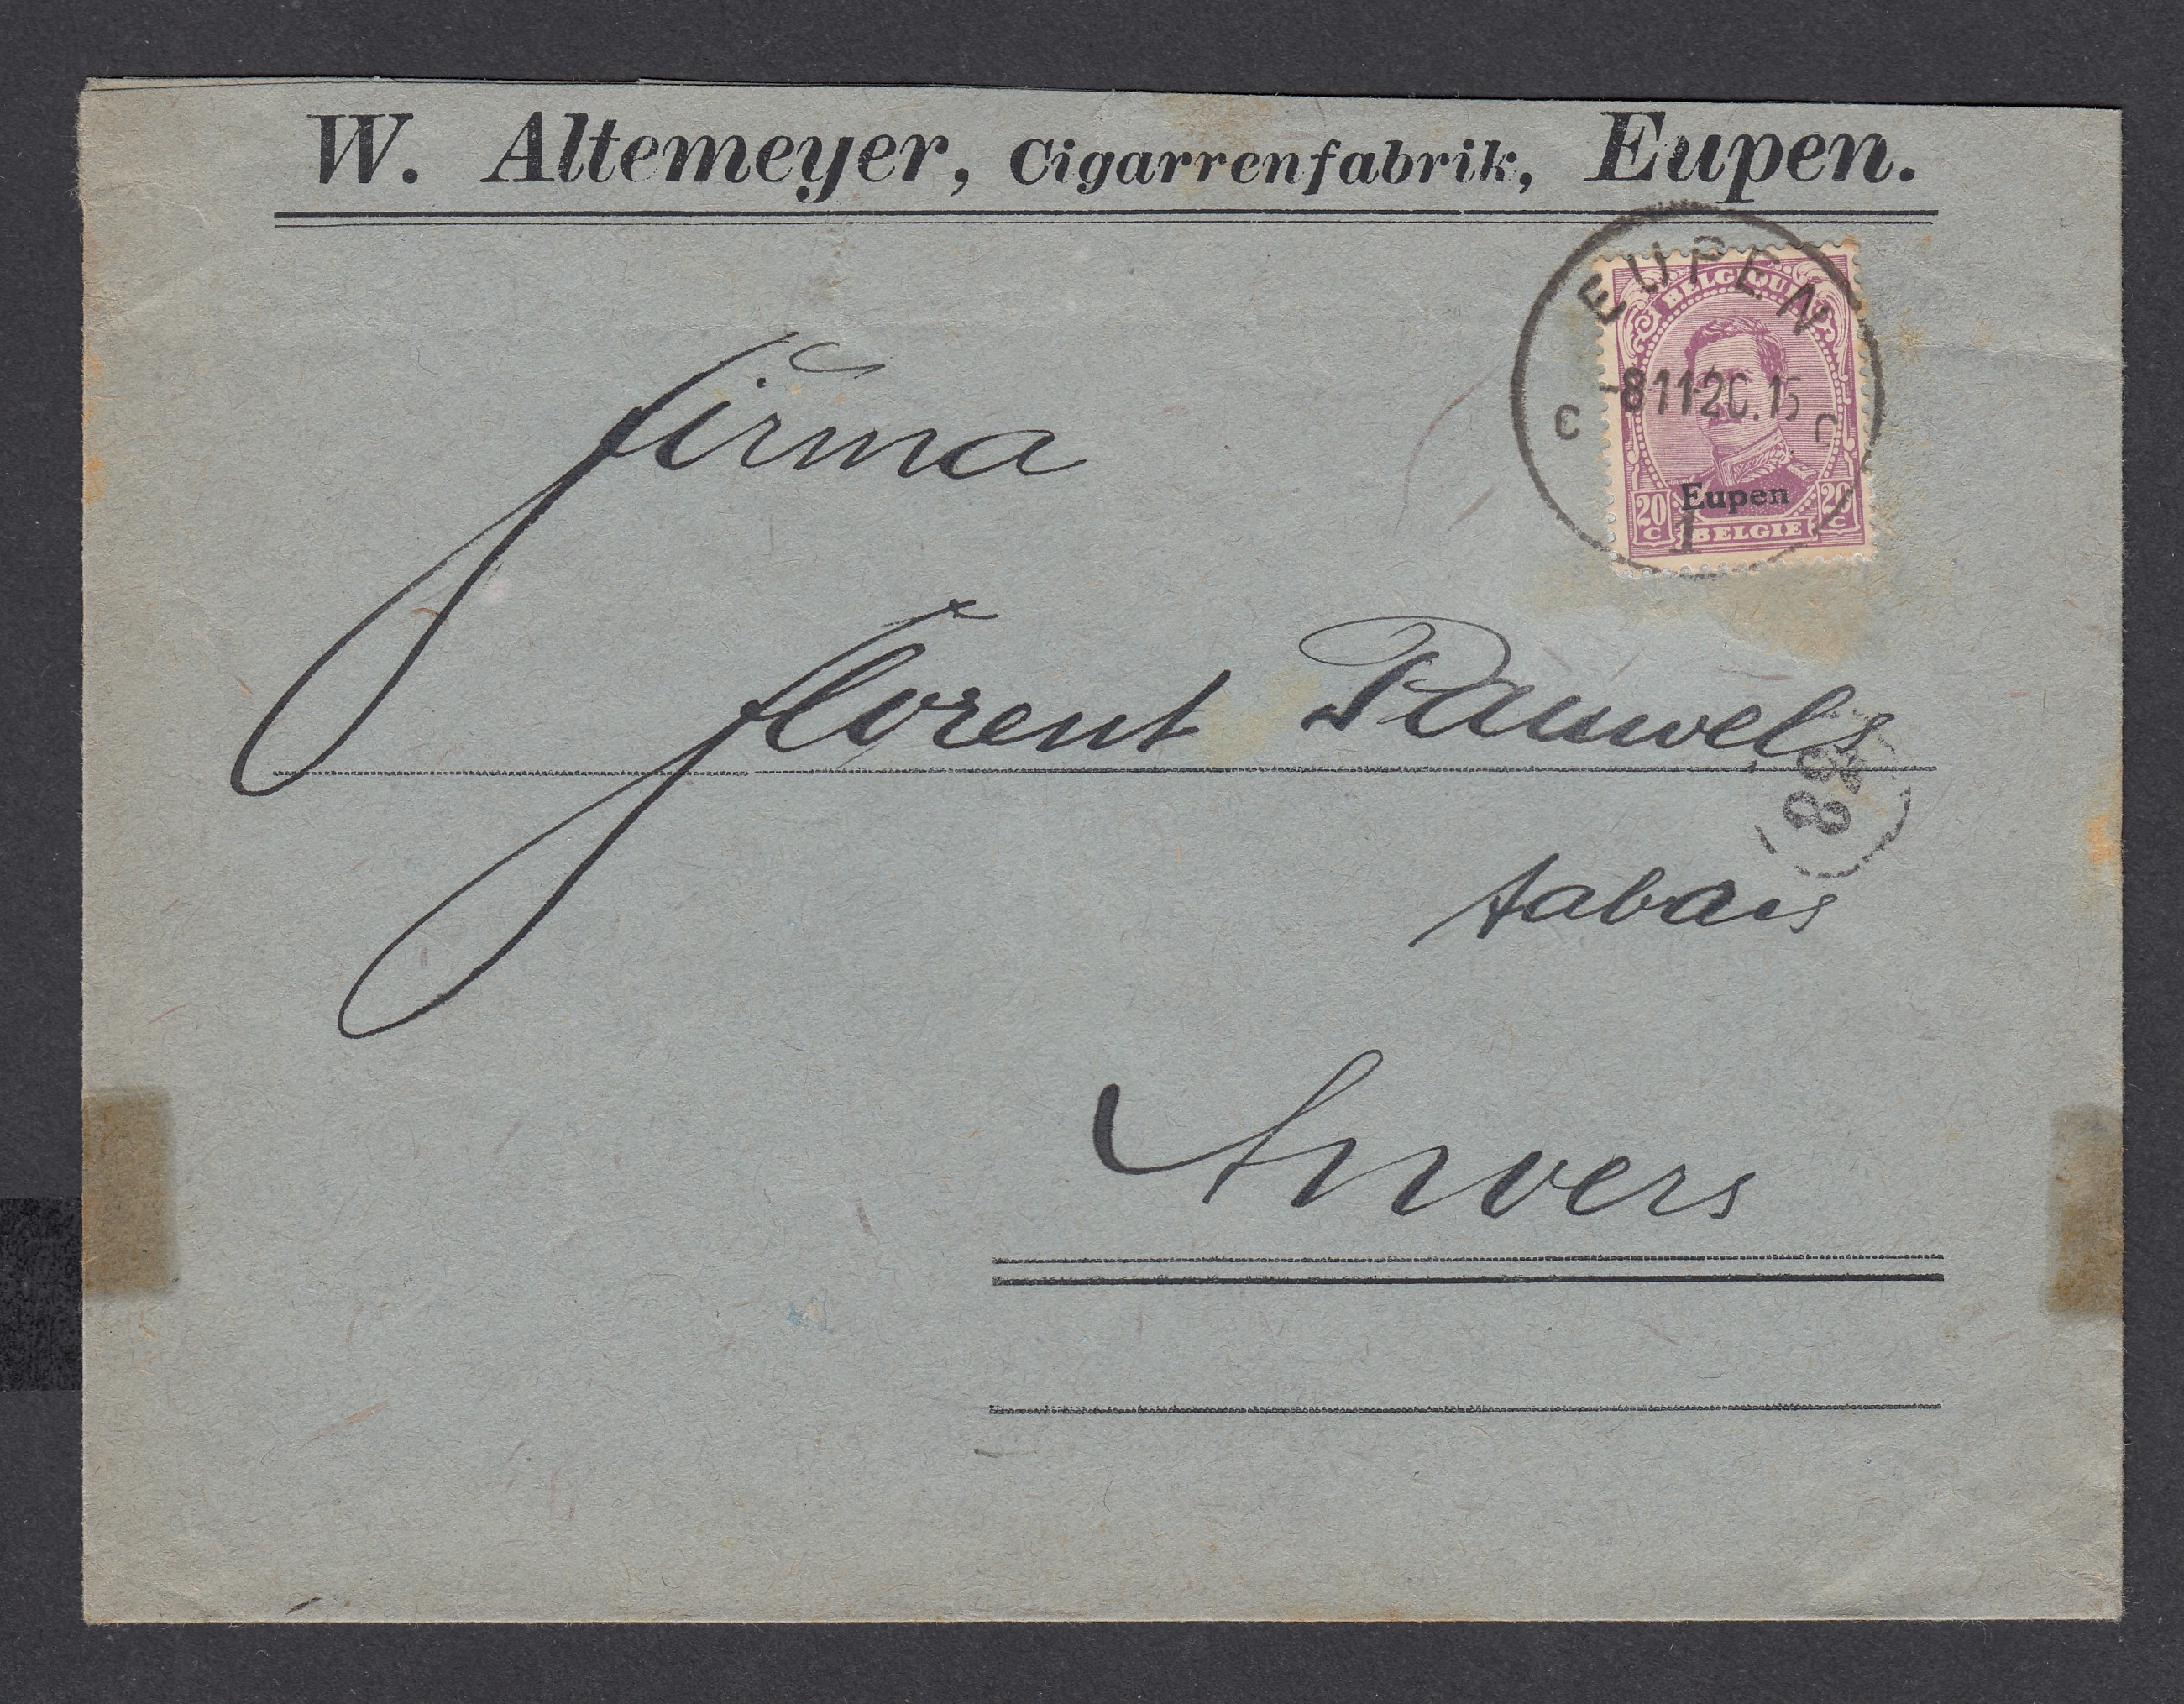 W. Altemeyer, Cigarrenfabrik, Eupen.
EUPEN
BELGIQUE
-8 11-20.15
C C
Eupen
20 C 20 C
BELGIE
1
Firma
Florent Pauwels
88
tabacs
Anvers